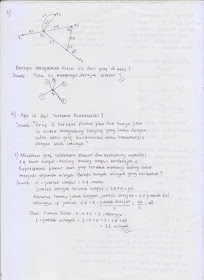 5)
Berapa derajatkah titik V2 dari graf di atas?
Jawab : Titik V2 mempunyai derajat sebesar 5
6) Apa isi dari Teorema Kuratowski?
Jawab : "Graf G bersifat planar jika dan hanya jika
ia tidak mengandung subgraf yang sama dengan
salah satu graf Kuratowski atau homeomorfik
dengan salah satunya."
7) Misalkan graf sederhana planar dan terhubung memiliki
24 buah simpul, masing-masing simpul berderajat 4.
Representasi planar dari graf tersebut membagi bidang datar
menjadi sejumlah wilayah. Berapa banyak wilayah yang terbentuk?
Jawab : n = jumlah simpul = 24 maka
jumlah derajat seluruh simpul = 24 × 4 = 96
Menurut lemma jabat tangan, jumlah derajat = 2 × jumlah sisi
sehingga e = jumlah sisi = jumlah derajat / 2 = 96/2 = 48
Dari rumus Euler, n - e + f = 2, sehingga
f = jumlah wilayah = 2 - n + e = 2 - 24 + 48
= 26 wilayah